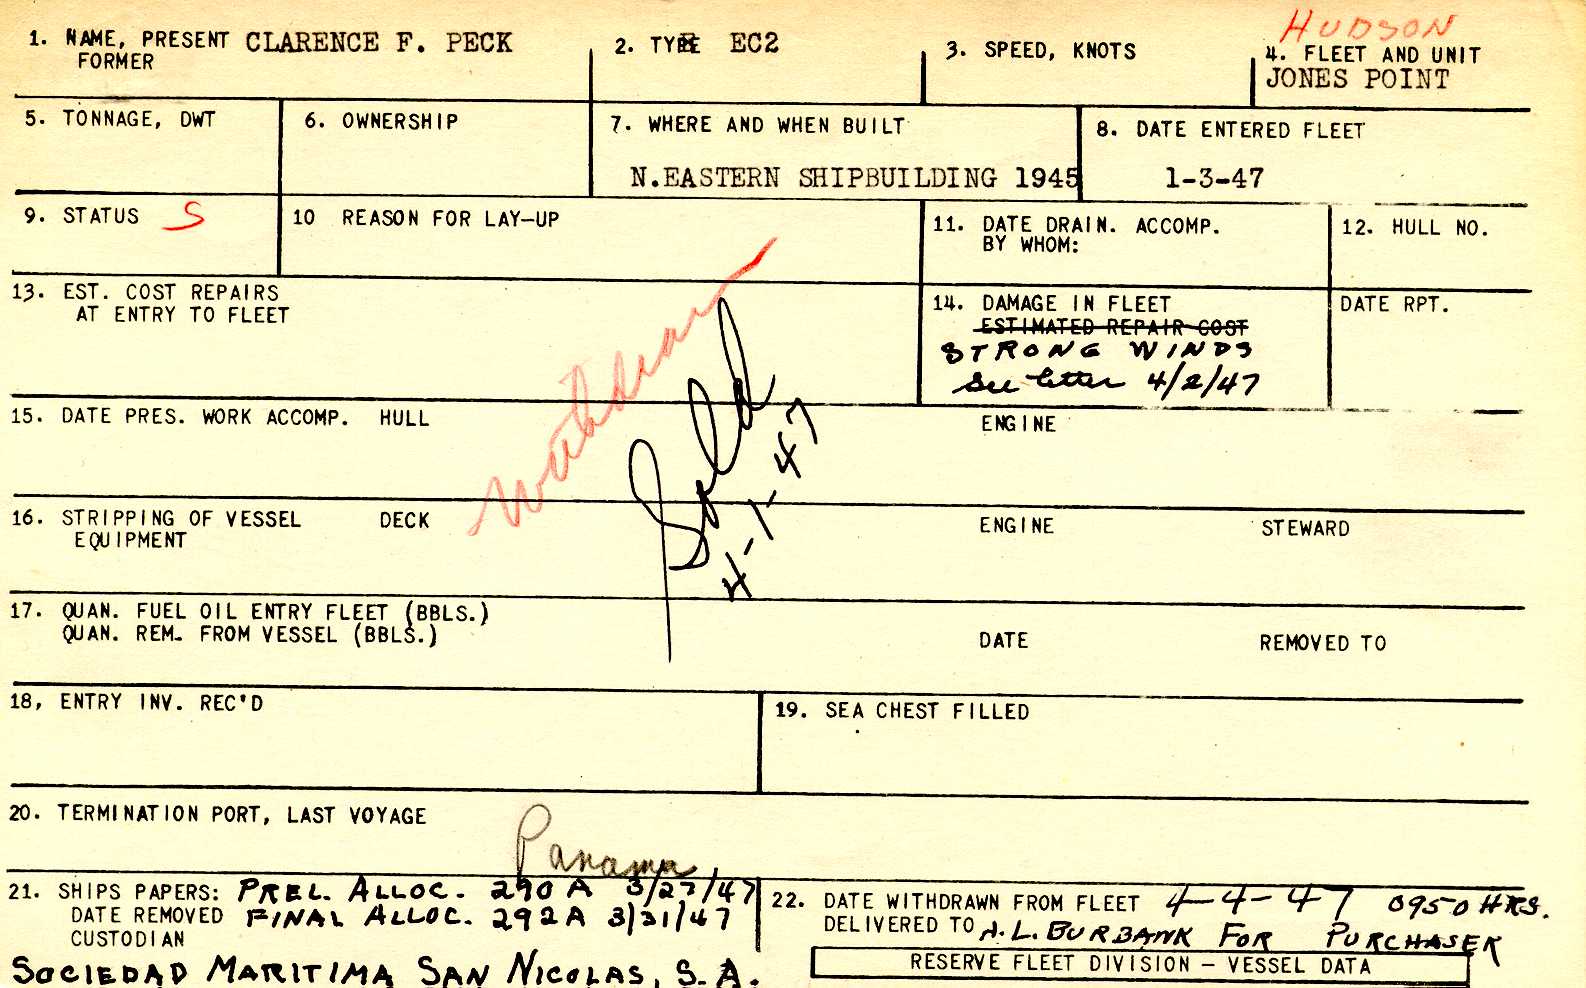 HUDSON
1. NAME, PRESENT CLARENCE F. PECK
FORMER
2. TYPE EC2
3. SPEED, KNOTS
4. FLEET AND UNIT
JONES POINT
5. TONNAGE, DWT
6. OWNERSHIP
7. WHERE AND WHEN BUILT
N.EASTERN SHIPBUILDING 1945
8. DATE ENTERED FLEET
1-3-47
9. STATUS S
10 REASON FOR LAY-UP
11. DATE DRAIN. ACCOMP.
BY WHOM:
12. HULL NO.
13. EST. COST REPAIRS
AT ENTRY TO FLEET
14. DAMAGE IN FLEET
ESTIMATED REPAIR COST
STRONG WINDS
See letter 4/2/47
DATE RPT.
withdrawn
Sold
4-1-47
15. DATE PRES. WORK ACCOMP. HULL
ENGINE
16. STRIPPING OF VESSEL DECK
EQUIPMENT
ENGINE
STEWARD
17. QUAN. FUEL OIL ENTRY FLEET (BBLS.)
QUAN. REM. FROM VESSEL (BBLS.)
DATE
REMOVED TO
18, ENTRY INV. REC'D
19. SEA CHEST FILLED
20. TERMINATION PORT, LAST VOYAGE
Panama
21. SHIPS PAPERS: PREL. ALLOC. 290A 3/27/47
DATE REMOVED FINAL ALLOC. 292A 3/31/47
CUSTODIAN
SOCIEDAD MARITIMA SAN NICOLAS, S.A.
22. DATE WITHDRAWN FROM FLEET 4-4-47 0950 HRS.
DELIVERED TO A.L. BURBANK FOR PURCHASER
RESERVE FLEET DIVISION — VESSEL DATA